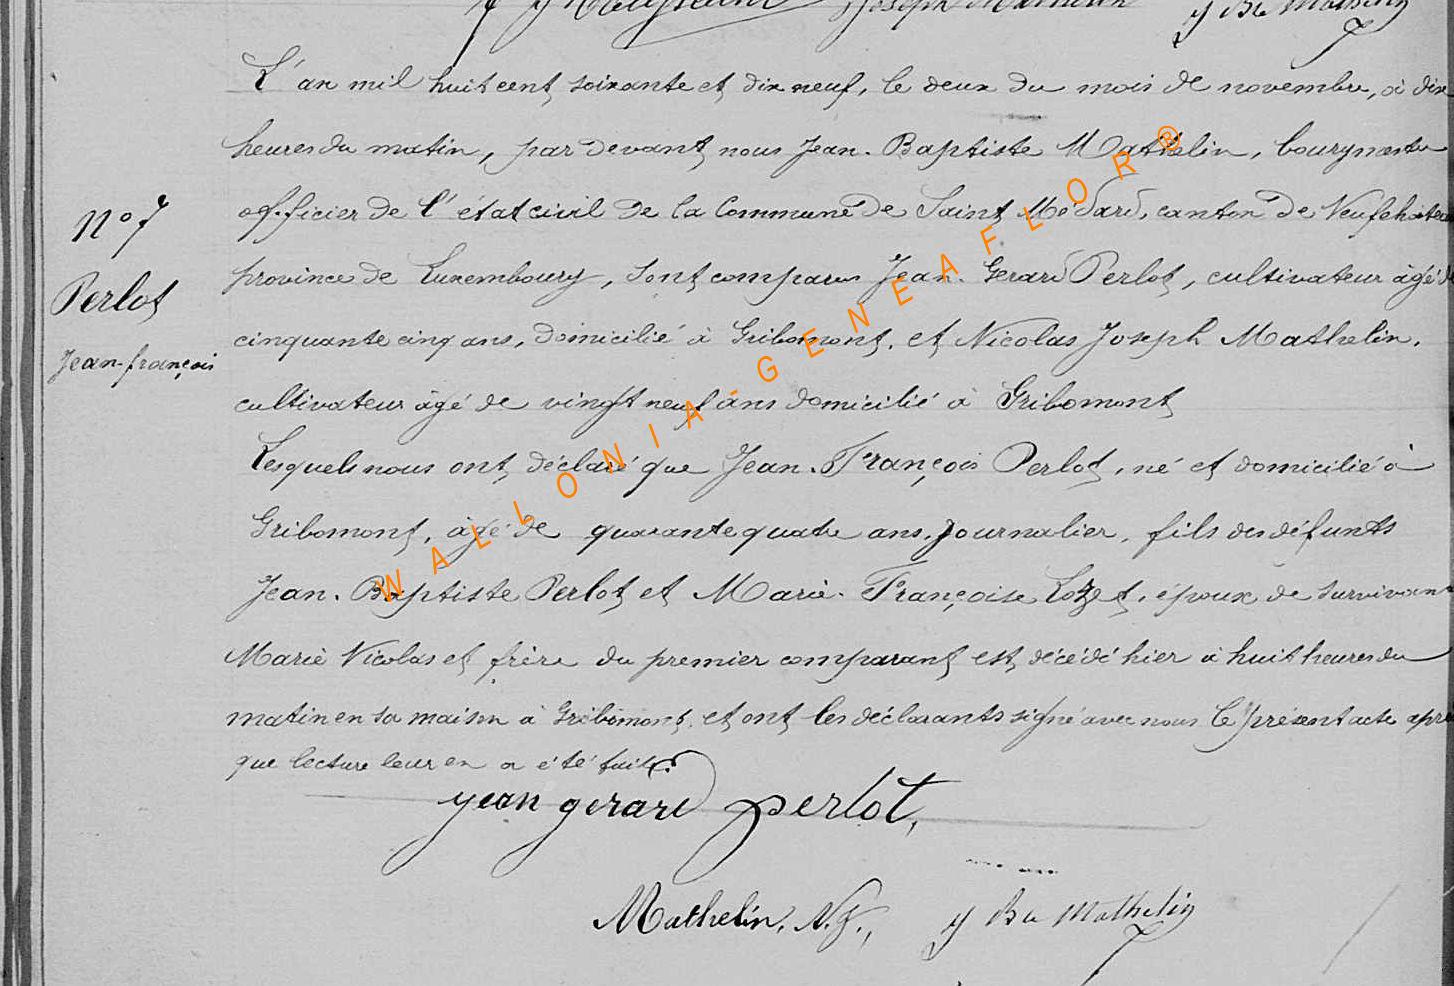 Jean Bte Mathelin
L'an mil huit cent soixante et dix neuf, le deux du mois de novembre, à dix
heures du matin, par devant nous Jean-Baptiste Mathelin, bourgmestre
officier de l'état civil de la Commune de Saint Médard, canton de Neufchâteau
province de Luxembourg, sont comparus Jean-Gerard Perlot, cultivateur âgé de
cinquante cinq ans, domicilié à Gribomont, et Nicolas Joseph Mathelin,
cultivateur âgé de vingt neuf ans domicilié à Gribomont
Lesquels nous ont déclaré que Jean-François Perlot, né et domicilié à
Gribomont, âgé de quarante quatre ans, journalier, fils des défunts
Jean-Baptiste Perlot et Marie-Françoise Lozet, époux de survivante
Marie Nicolas et frère du premier comparant est décédé hier à huit heures du
matin en sa maison à Gribomont, et ont les déclarants signé avec nous le présent acte après
que lecture leur en a été faite.
N° 7
Perlot
Jean-françois
jean gerard perlot,
Mathelin, N.J., J Bte Mathelin
WALLONIA-GENEAFLOR®